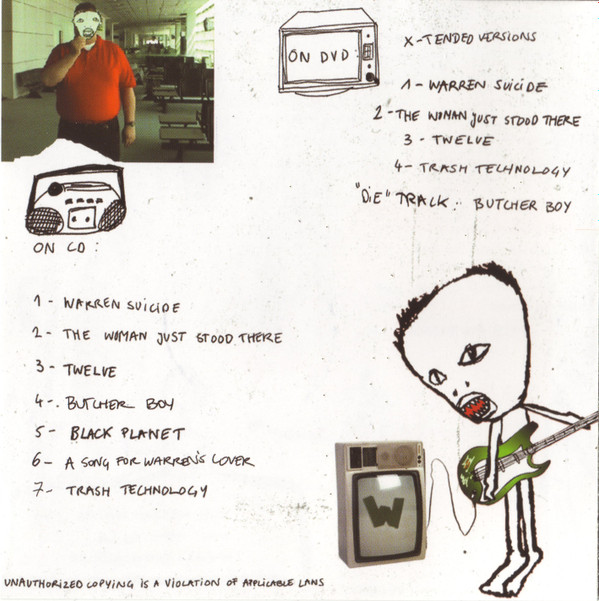 ON DVD:
X-TENDED VERSIONS
1 - WARREN SUICIDE
2 - THE WOMAN JUST STOOD THERE
3 - TWELVE
4 - TRASH TECHNOLOGY
"DIE" TRACK: BUTCHER BOY
ON CD:
1 - WARREN SUICIDE
2 - THE WOMAN JUST STOOD THERE
3 - TWELVE
4 -. BUTCHER BOY
5 - BLACK PLANET
6 - A SONG FOR WARREN'S LOVER
7 - TRASH TECHNOLOGY
W
UNAUTHORIZED COPYING IS A VIOLATION OF APPLICABLE LAWS